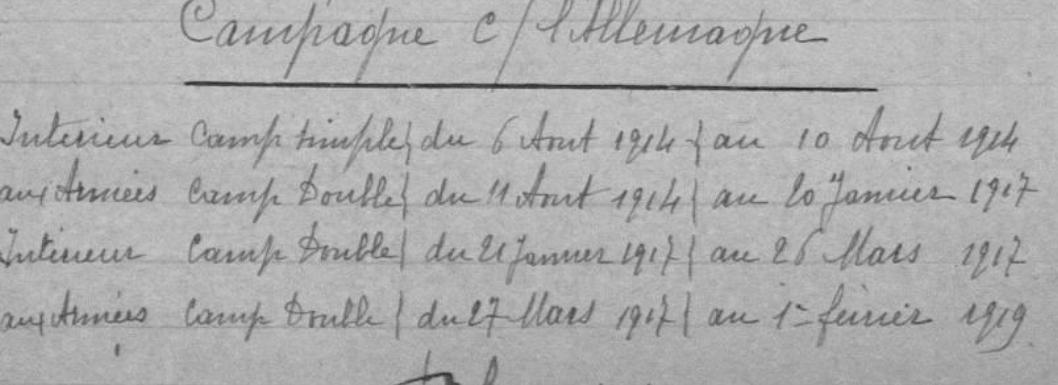 Campagne c/ l'Allemagne
Intérieur Camp simple} du 6 Aout 1914 { au 10 Aout 1914
aux Armées Camp Double} du 11 Aout 1914 { au 20 Janvier 1917
Intérieur Camp Double} du 21 Janvier 1917 { au 26 Mars 1917
aux Armées Camp Double { du 27 Mars 1917 { au 1er février 1919